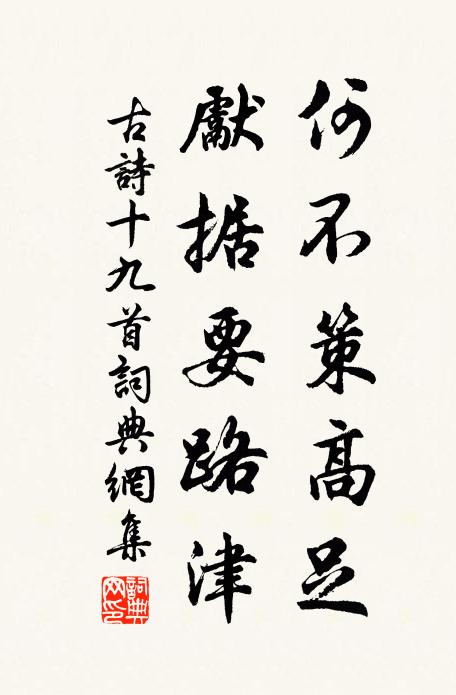 何不策高足
獻据要路津
古詩十九首詞典網集
詞典网印